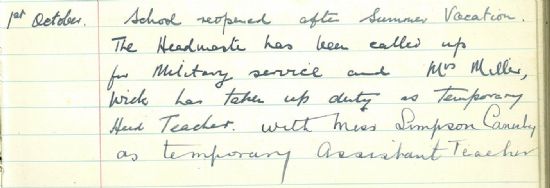 1st October. School reopened after Summer Vacation.
The Headmaster has been called up
for Military service and Mrs Miller,
Wick has taken up duty as temporary
Head Teacher. with Miss Simpson
as temporary Assistant Teacher